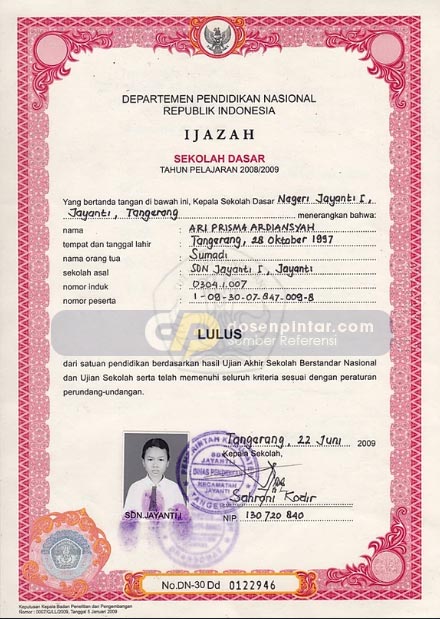 DEPARTEMEN PENDIDIKAN NASIONAL
REPUBLIK INDONESIA
IJAZAH
SEKOLAH DASAR
TAHUN PELAJARAN 2008/2009
Yang bertanda tangan di bawah ini, Kepala Sekolah Dasar Negeri Jayanti I,
Jayanti, Tangerang menerangkan bahwa:
nama ARI PRISMA ARDIANSYAH
tempat dan tanggal lahir Tangerang, 28 Oktober 1997
nama orang tua Sumadi
sekolah asal SDN Jayanti I, Jayanti
nomor induk 0304.1.007
nomor peserta 1-08-30-07-847-009-8
dosenpintar.com
Sumber Referensi
LULUS
dari satuan pendidikan berdasarkan hasil Ujian Akhir Sekolah Berstandar Nasional
dan Ujian Sekolah serta telah memenuhi seluruh kriteria sesuai dengan peraturan
perundang-undangan.
Tangerang, 22 Juni 2009
Kepala Sekolah,
SDN
JAYANTI
DINAS PENDIDIKAN
KECAMATAN
JAYANTI
Sahroni Kodir
NIP 130 720 840
SDN.JAYANTI.I
No.DN-30 Dd 0122946
Keputusan Kepala Badan Penelitian dan Pengembangan